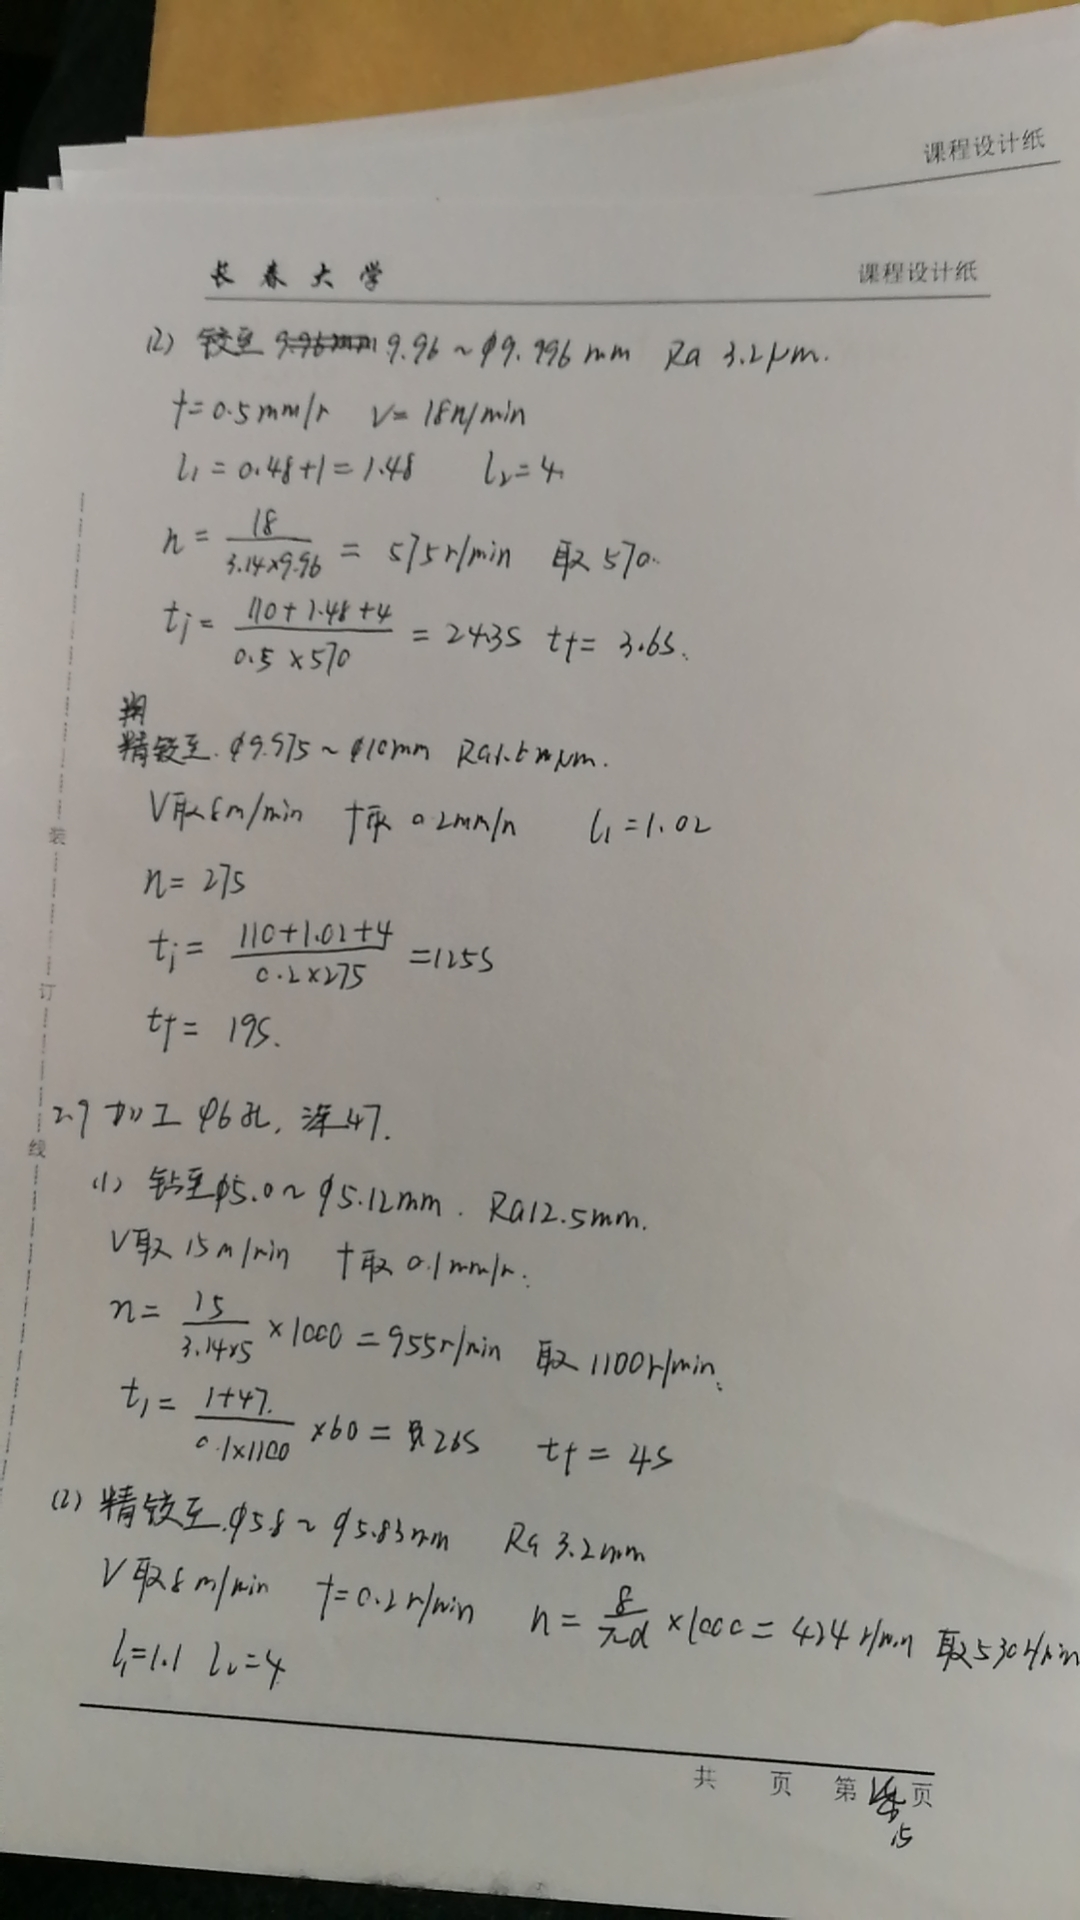 课程设计纸
长春大学 课程设计纸
(2) 铰至 9.96 ~ φ9.996 mm Ra 3.2μm.
f=0.5mm/r V=18m/min
l₁ = 0.48+1 = 1.48 l₂=4
n = 18/(3.14×9.96) = 575r/min 取570.
tj = (110+1.48+4)/(0.5×570) = 24.3S tf= 3.6S.
精铰至 φ9.975 ~ φ10mm
V取8m/min f取 0.2mm/r l₁=1.02
n= 275
tj = (110+1.02+4)/(0.2×275) =125S
tf= 19S.
装
订
线
2.9 加工 φ6孔, 深47.
(1) 钻至φ5.0~ φ5.12mm. Ra12.5mm.
V取 15m/min f取 0.1mm/r.
n= 15/(3.14×5) ×1000 = 955r/min 取 1100r/min.
t₁= (1+47)/(0.1×1100) ×60 = 26S tf = 4S
(2) 精铰至 φ5.8 ~ φ5.83mm Ra 3.2mm
V取8m/min f=0.2r/min n= 8/πd ×1000= 424r/min 取530r/min
l₁=1.1 l₂=4
共 页 第 页
15